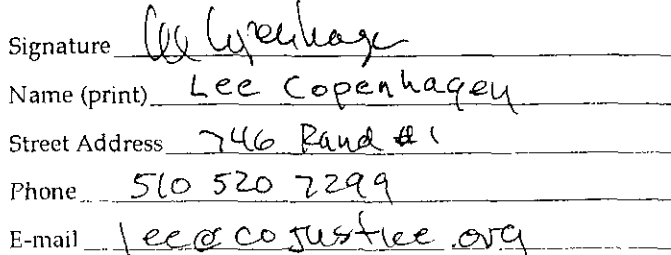 Signature Lee Copenhagen
Name (print) Lee Copenhagen
Street Address 746 Rand #1
Phone 510 520 7299
E-mail lee@cojustice.org